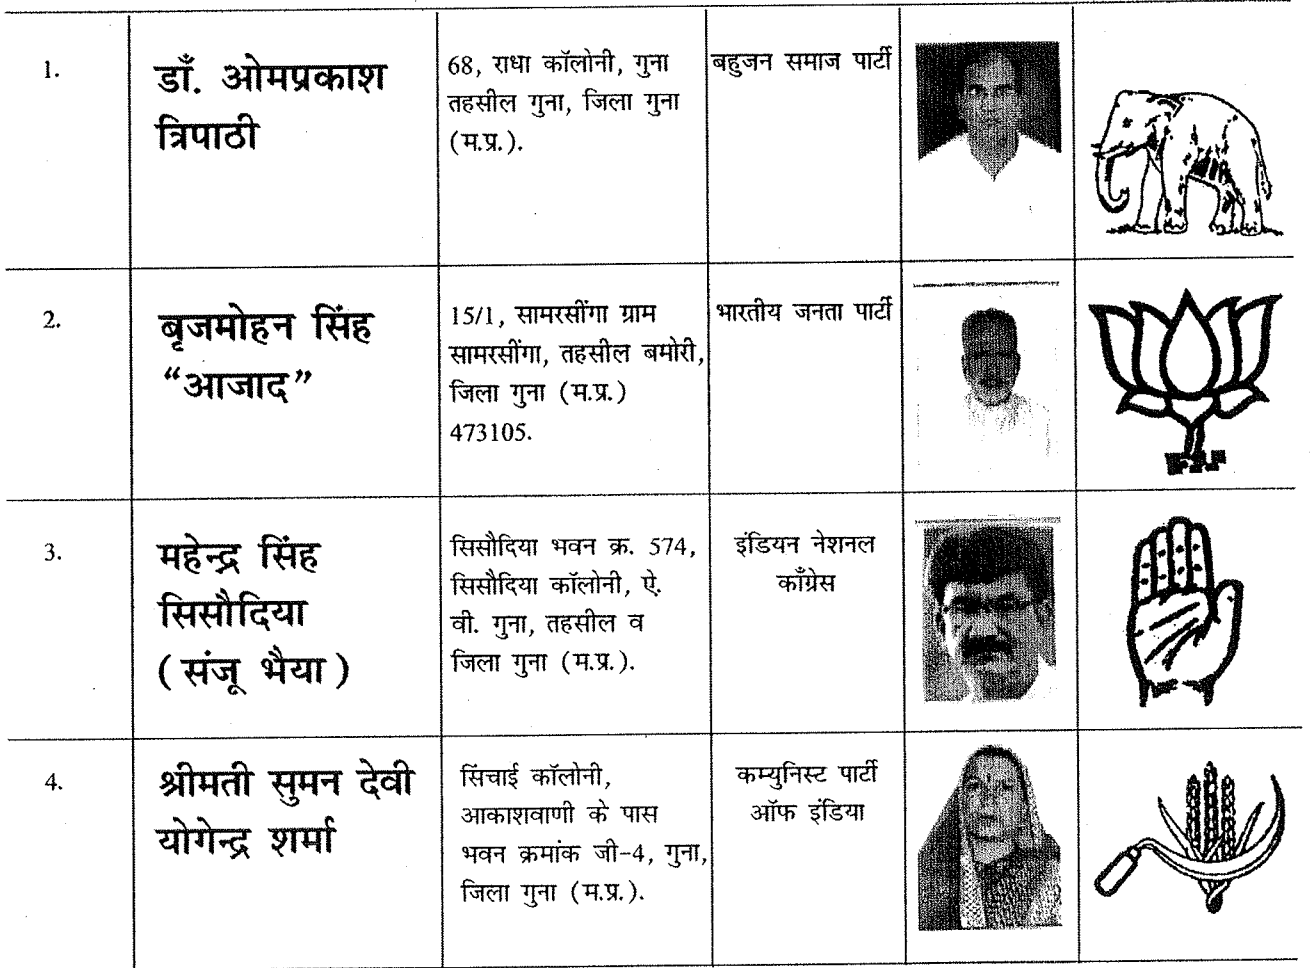 1.
डाँ. ओमप्रकाश
त्रिपाठी
68, राधा कॉलोनी, गुना
तहसील गुना, जिला गुना
(म.प्र.).
बहुजन समाज पार्टी
2.
बृजमोहन सिंह
“आजाद”
15/1, सामरसींगा ग्राम
सामरसींगा, तहसील बमोरी,
जिला गुना (म.प्र.)
473105.
भारतीय जनता पार्टी
3.
महेन्द्र सिंह
सिसौदिया
(संजू भैया)
सिसौदिया भवन क्र. 574,
सिसौदिया कॉलोनी, ऐ.
वी. गुना, तहसील व
जिला गुना (म.प्र.).
इंडियन नेशनल
काँग्रेस
4.
श्रीमती सुमन देवी
योगेन्द्र शर्मा
सिंचाई कॉलोनी,
आकाशवाणी के पास
भवन क्रमांक जी-4, गुना,
जिला गुना (म.प्र.).
कम्युनिस्ट पार्टी
ऑफ इंडिया